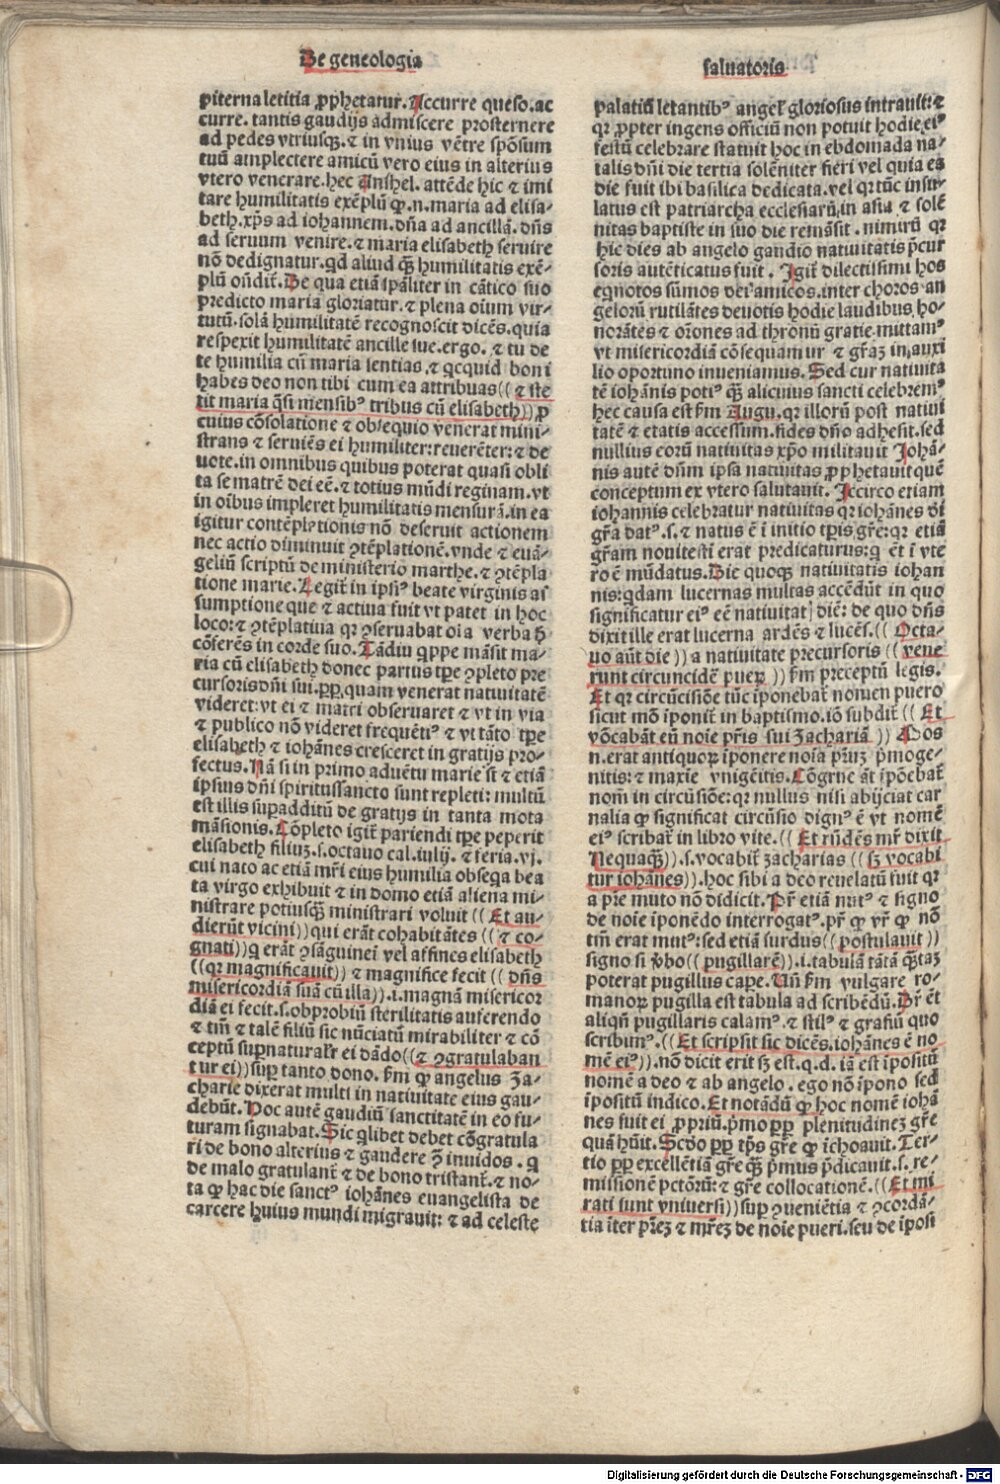 De geneologia
saluatoris
piterna letitia ꝓphetatur. Accurre queso. ac
curre. tantis gaudijs admiscere prosternere
ad pedes vtriusqꝫ. ⁊ in vnius vētre spōsum
tuū amplectere amicū vero eius in alterius
vtero venerare. hec Anshel. attēde hic ⁊ imi
tare humilitatis exēplū ꝙ .n. maria ad elisa-
beth. xp̄s ad iohannem. dn̄a ad ancillā. dn̄s
ad seruum venire. ⁊ maria elisabeth seruire
nō dedignatur. qd aliud q̄ꝫ humilitatis exē-
plū on̄dit̄. De qua etiā sp̄aliter in cātico suo
predicto maria gloriatur. ⁊ plena oīum vir-
tutū. solā humilitatē recognoscit dicēs. quia
respexit humilitatē ancille sue. ergo. ⁊ tu de
te humilia cū maria sentias. ⁊ qcquid boni
habes deo non tibi cum ea attribuas ((⁊ ste
tit maria q̄si mensibꝰ tribus cū elisabeth)) ꝓ
cuius cōsolatione ⁊ obsequio venerat mini-
strans ⁊ seruiēs ei humiliter: reuerēter: ⁊ de
uote. in omnibus quibus poterat quasi obli
ta se matrē dei eē. ⁊ totius mūdi reginam. vt
in oībus impleret humilitatis mensurā. in ea
igitur contēplationis nō deseruit actionem
nec actio diminuit ꝯtēplationē. vnde ⁊ euā-
geliū scriptū de ministerio marthe. ⁊ ꝯtēpla
tione marie. Legit̄ in ipsiꝰ beate virginis as
sumptione que ⁊ actiua fuit vt patet in hoc
loco: ⁊ ꝯtēplatiua qꝛ ꝯseruabat oīa verba h̄
cōferēs in corde suo. Tādiu qppe māsit ma-
ria cū elisabeth donec partus tp̄e ꝯpleto pre
cursoris dn̄i sui. ꝓpꝑ quam venerat natiuitatē
videret: vt ei ⁊ matri obseruaret ⁊ vt in via
⁊ publico nō videret frequētiꝰ ⁊ vt tāto tp̄e
elisabeth ⁊ iohānes cresceret in gratijs pro-
fectus. Nā si in primo aduētu marie sit ⁊ etiā
ipsius dn̄i spiritussancto sunt repleti: multū
est illis suꝑadditū de gratijs in tanta mota
māsionis. Cōpleto igit̄ pariendi tp̄e peperit
elisabeth filiuꝫ. s. octauo cal. iulij. ⁊ feria. vj.
cui nato ac etiā mr̄i eius humilia obseqa bea
ta virgo exhibuit ⁊ in domo etiā aliena mi-
nistrare potiusq̄ꝫ ministrari voluit ((Et au-
dierūt vicini)) qui erāt cohabitātes ((⁊ co-
gnati)) q erāt ꝯsāguinei vel affines elisabeth
((qꝛ magnificauit)) ⁊ magnifice fecit ((dn̄s
misericordiā suā cū illa)). i. magnā misericor
diā ei fecit. s. obprobiū sterilitatis auferendo
⁊ tm̄ ⁊ talē filiū sic nūciatū mirabiliter ⁊ cō
ceptū suꝑnatural̄r ei dādo ((⁊ ꝯgratulaban
tur ei)) suꝑ tanto dono. ẜm ꝙ angelus za-
charie dixerat multi in natiuitate eius gau-
debūt. Hoc autē gaudiū sanctitatē in eo fu-
turam signabat. Sic qlibet debet cōgratula
ri de bono alterius ⁊ gaudere ꝯ̄ inuidos. q
de malo gratulant̄ ⁊ de bono tristant̄. ⁊ no-
ta ꝙ hac die sanctꝰ iohānes euangelista de
carcere huius mundi migrauit: ⁊ ad celeste
palatiū letantibꝰ angel̄ gloriosus intrauit: ⁊
qꝛ ꝓpter ingens officiū non potuit hodie eiꝰ
festū celebrare statuit hoc in ebdomada na-
talis dn̄i die tertia solēniter fieri vel quia ea
die fuit ibi basilica dedicata. vel qꝛ tūc insti-
latus est patriarcha ecclesiarū in asia ⁊ solē
nitas baptiste in suo die remāsit. nimirū qꝛ
hic dies ab angelo gaudio natiuitatis p̄cur
soris autēticatus fuit. Igit̄ dilectissimi hos
egnotos sūmos dei amicos. inter choros an
gelorū rutilātes deuotis hodie laudibus ho-
norātes ⁊ or̄ones ad thronū gratie mittamꝰ
vt misericordiā cōsequamur ⁊ gr̄aꝫ in auxi
lio oportuno inueniamus. Sed cur natiuita
tē iohānis potiꝰ q̄ꝫ alicuius sancti celebremꝰ
hec causa est ẜm Augu. qꝛ illorū post natiui
tatē ⁊ etatis accessum. fides dn̄o adhesit. sed
nullius eorū natiuitas xp̄o militauit Johā-
nis autē dn̄m ipsa natiuitas ꝓphetauit quē
conceptum ex vtero salutauit. Iccirco etiam
iohannis celebratur natiuitas qꝛ iohānes di
gr̄a datꝰ. s. ⁊ natus ē ī initio tp̄is gr̄e: qꝛ etiā
gr̄am noui testi erat predicaturus: q ēt ī vte
ro ē mūdatus. Dic quoqꝫ natiuitatis iohan
nis: qdam lucernas multas accēdūt in quo
significatur eiꝰ eē natiuitat̄ diē: de quo dn̄s
dixit ille erat lucerna ardēs ⁊ lucēs. ((Octa-
uo aūt die)) a natiuitate precursoris ((vene
runt circuncidē pueꝝ)) ẜm preceptū legis.
Et qꝛ circūcisiōe tūc īponebat̄ nomen puero
sicut mō īponit̄ in baptismo. iō subdit̄ ((Et
vōcabāt eū noīe pr̄is sui Zachariā)) Mos
n. erat antiquoꝝ īponere noīa p̄rīuꝫ p̄moge-
nitis: ⁊ maxīe vnigēitis. Cōgrue āt īpōebat̄
nom̄ in circūsiōe: qꝛ nullus nisi abijciat car
nalia ꝙ significat circūsio dignꝰ ē vt nomē
eiꝰ scribat̄ in libro vite. ((Et rn̄dēs mr̄ dixit
Nequaq̄ꝫ)). s. vocabit̄ zacharias ((sꝫ vocabi
tur iohānes)). hoc sibi a deo reuelatū fuit qꝛ
a p̄re muto nō didicit. Pr̄ etiā nutꝰ ⁊ signo
de noīe īponēdo interrogatꝰ. pr̄ ꝙ vr̄ ꝙ nō
tm̄ erat mutꝰ: sed etiā surdus ((postulauit))
signo si v̄bo ((pugillarē)). i. tabulā tātā q̄ꝫtaꝫ
poterat pugillus caꝑe. Uñ ẜm vulgare ro-
manoꝝ pugilla est tabula ad scribēdū. Pr̄ ēt
aliqñ pugillaris calamꝰ. ⁊ stilꝰ ⁊ grafiū quo
scribimꝰ. ((Et scripsit sic dicēs. iohānes ē no
mē eiꝰ)). nō dicit erit sꝫ est. q. d. iā est īpositū
nomē a deo ⁊ ab angelo. ego nō īpono sed
īpositū indico. Et notādū ꝙ hoc nomē iohā
nes fuit ei ꝓpriū. p̄mo ꝓpꝑ plenitudineꝫ gr̄e
quā hūit. Scdo ꝓpꝑ tp̄s gr̄e ꝙ īchoauit. Ter-
tio ꝓpꝑ excellētiā gr̄e q̄ꝫ p̄mus p̄dicauit. s. re-
missionē pctōrū: ⁊ gr̄e collocationē. ((Et mi
rati sunt vniuersi)) suꝑ ꝯueniētia ⁊ ꝯcordā-
tia īter pr̄eꝫ ⁊ mr̄eꝫ de noīe pueri. seu de īposi
Digitalisierung gefördert durch die Deutsche Forschungsgemeinschaft - DFG